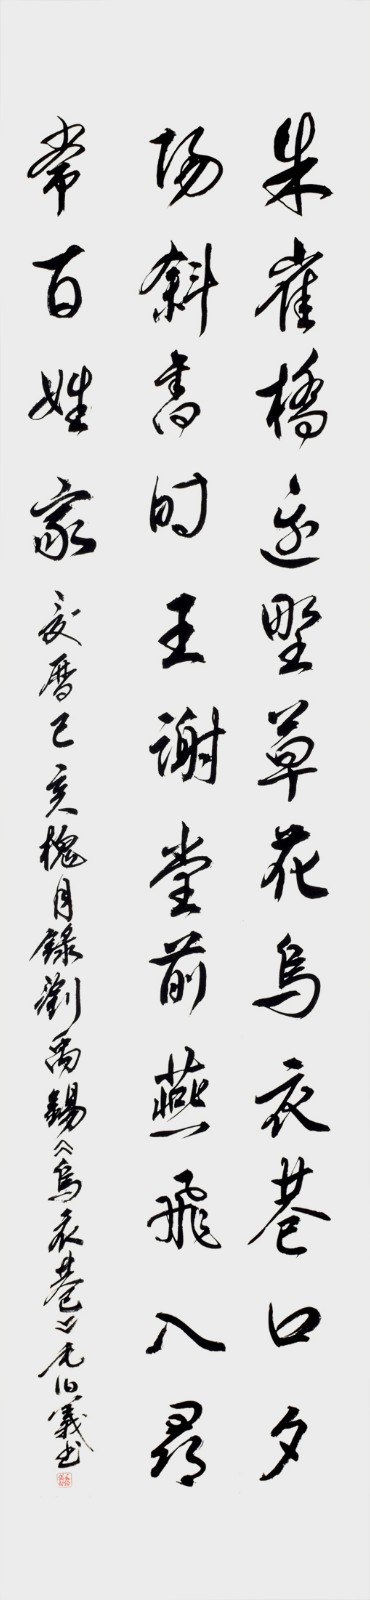 朱雀橋邊野草花烏衣巷口夕
陽斜舊時王謝堂前燕飛入尋
常百姓家 农曆己亥槐月錄劉禹錫《烏衣巷》伯義书